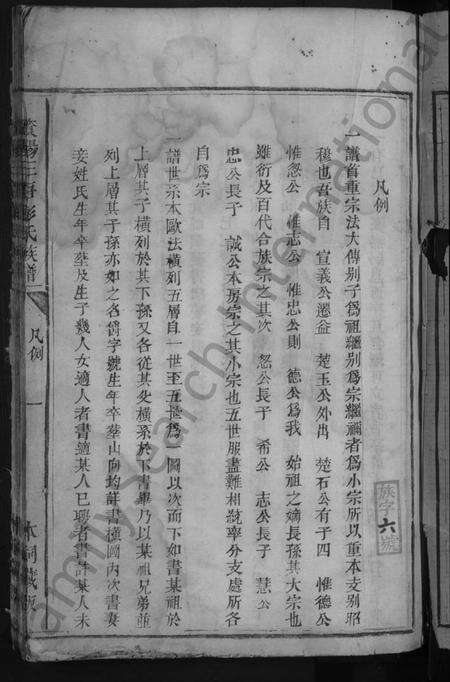 凡例
一譜首重宗法大傳别子爲祖繼别爲宗繼禰者爲小宗所以重本支别昭
穆也吾族自 宣義公遷益 楚玉公外出 楚石公有子四 惟德公
惟恕公 惟志公 惟忠公則 德公爲我 始祖之嫡長孫其大宗也
雖衍及百代合族宗之其次 恕公長子 希公 志公長子 慧公
忠公長子 誠公本房宗之其小宗也五世服盡難相統率分支處所各
自爲宗
一譜世系本歐法橫列五層自一世至五世爲一圖以次而下如書某祖於
上層其子橫列於其下孫又各從其父橫系於下書畢乃以某祖兄弟並
列上層其子孫亦如之名爵字號生年卒塟山向均詳書橫圖内次書妻
妾姓氏生年卒塟及生子幾人女適人者書適某人已聘者書許某人未
族字六號
三晉彭氏族譜
凡例
一
木祠藏板
Family Search International